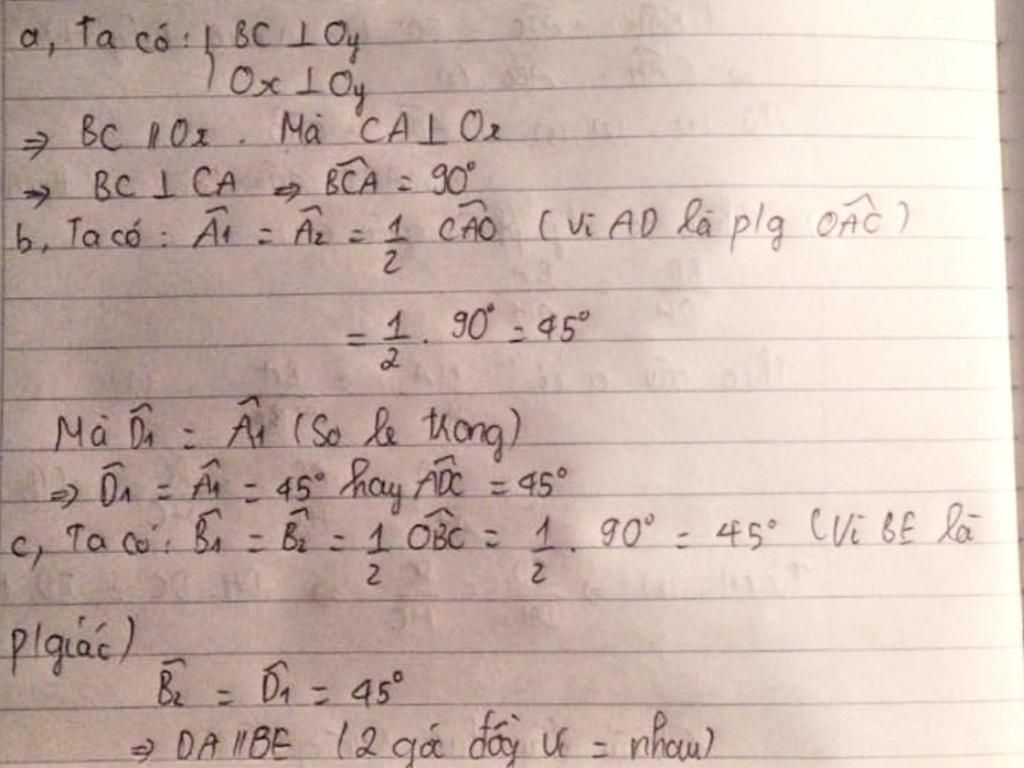 a, Ta có: { BC ⊥ Oy
Ox ⊥ Oy
⇒ BC // Ox . Mà CA ⊥ Ox
⇒ BC ⊥ CA ⇒ \widehat{BCA} = 90°
b, Ta có: \widehat{A1} = \widehat{A2} = 1/2 \widehat{CAO} (Vì AD là p/g \widehat{OAC})
= 1/2 . 90° = 45°
Mà \widehat{D1} = \widehat{A1} (So le trong)
⇒ \widehat{D1} = \widehat{A1} = 45° hay \widehat{ADC} = 45°
c, Ta có: \widehat{B1} = \widehat{B2} = 1/2 \widehat{OBC} = 1/2 . 90° = 45° (Vì BE là
p/giác)
\widehat{B2} = \widehat{D1} = 45°
⇒ DA // BE (2 góc đồg vị = nhau)